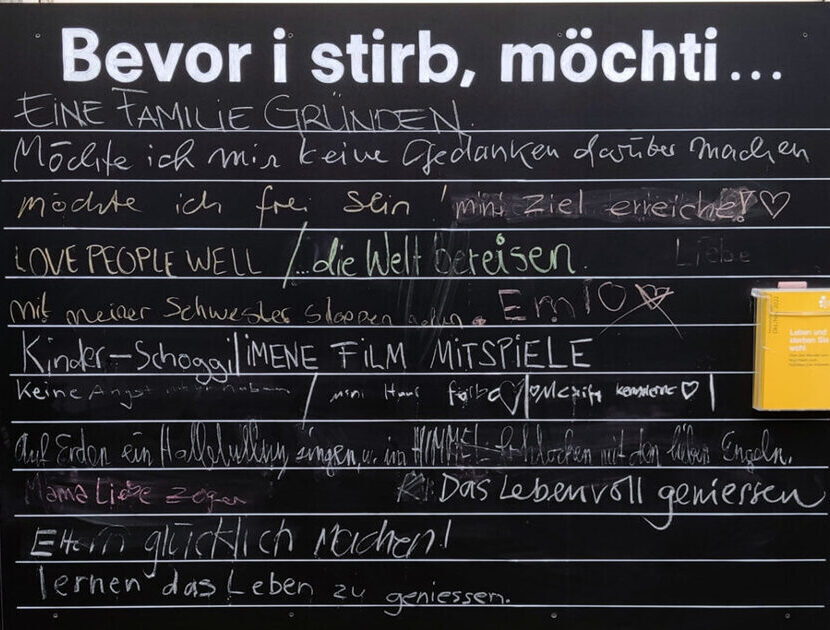 Bevor i stirb, möchti...
EINE FAMILIE GRÜNDEN.
Möchte ich mir keine Gedanken darüber machen
möchte ich frei sein! mini ziel erreiche! ♡
LOVE PEOPLE WELL / ...die Welt bereisen. Liebe
mit meiner Schwester
Kinder-Schoggi / iMENE FiLM MiTSPiELE
Keine Angst / mini Haut
Auf Erden ein singen, u. im HIMMEL frohlocken mit den lieben Engeln.
Mama Liebe Das Leben voll geniessen
Eltern glücklich machen!
lernen das Leben zu geniessen.
Leben und
sterben Sie
wohl